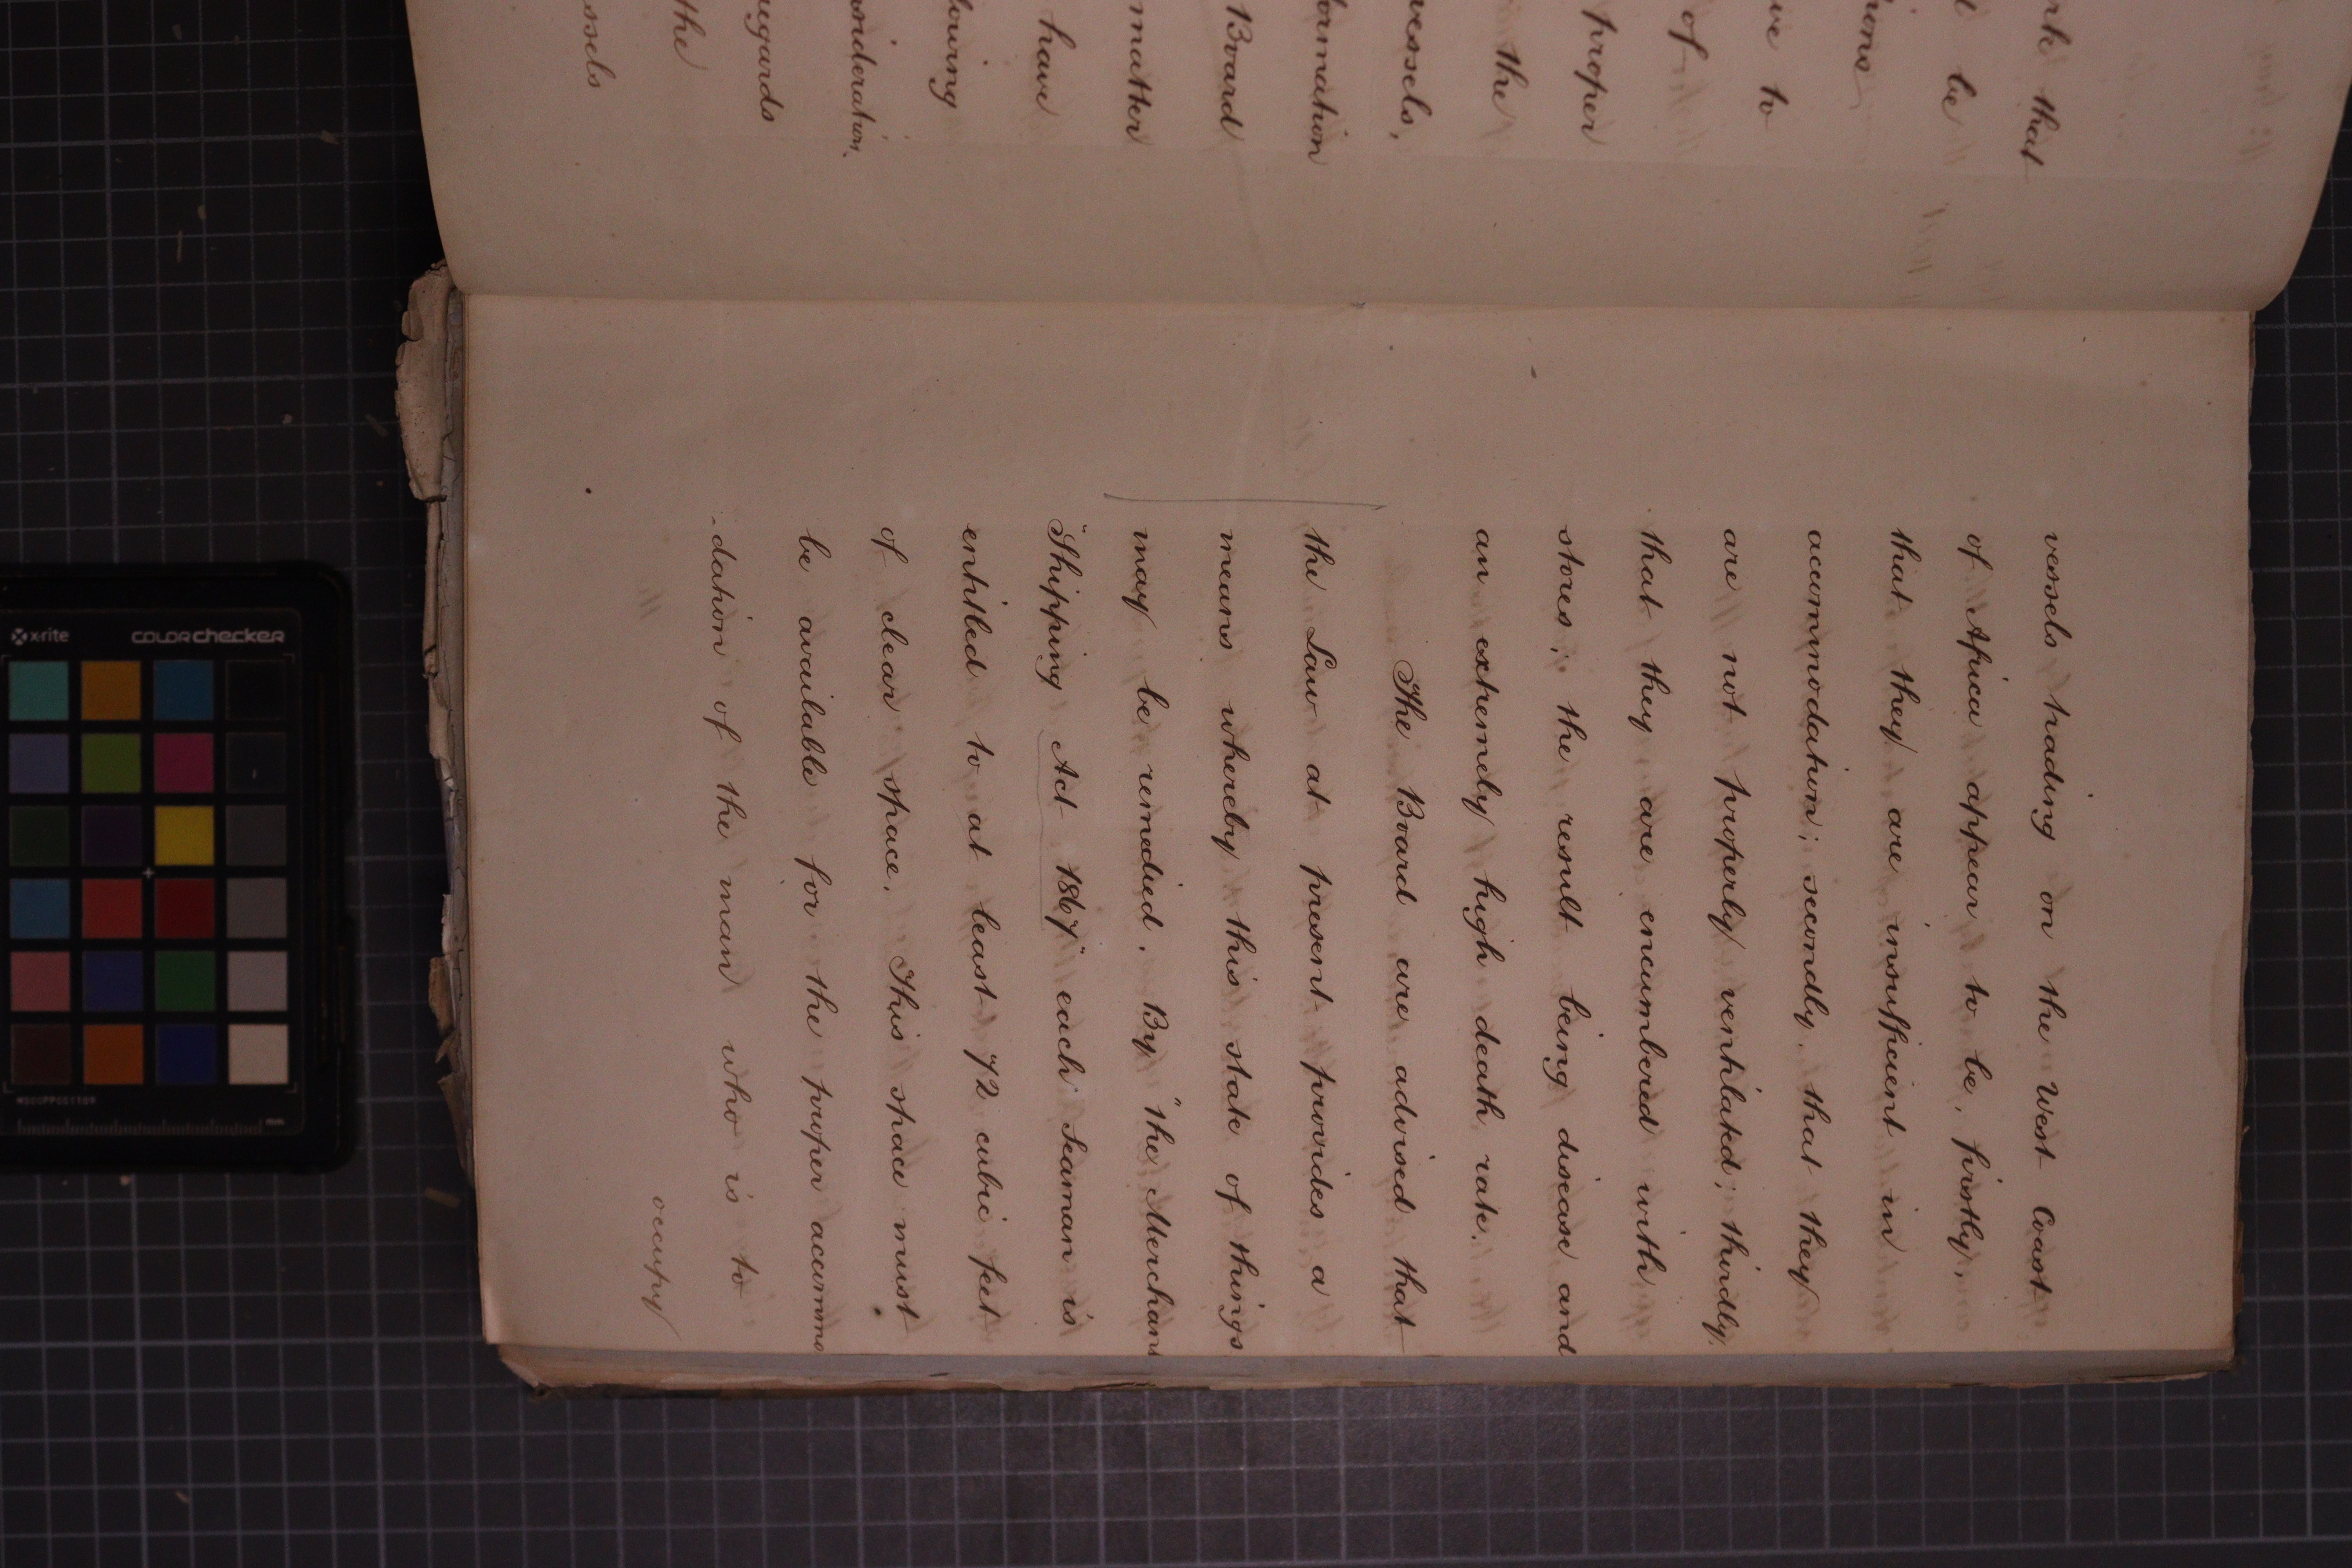 rk that
be
ions
ve to
of
proper
the
vessels,
ormation
Board
matter
have
lowing
nsideration.
egards
the
ssels
vessels trading on the West Coast
of Africa appear to be, firstly,
that they are insufficient in
accommodation; secondly, that they
are not properly ventilated; thirdly,
that they are encumbered with
stores; the result being disease and
an extremely high death rate.
The Board are advised that
the Law at present provides a
means whereby this state of things
may be remedied. By "the Merchant
Shipping Act 1867" each Seaman is
entitled to at least 72 cubic feet
of clear space. This space must
be available for the proper accommo
-dation of the man who is to
occupy
x-rite
colorchecker
mm